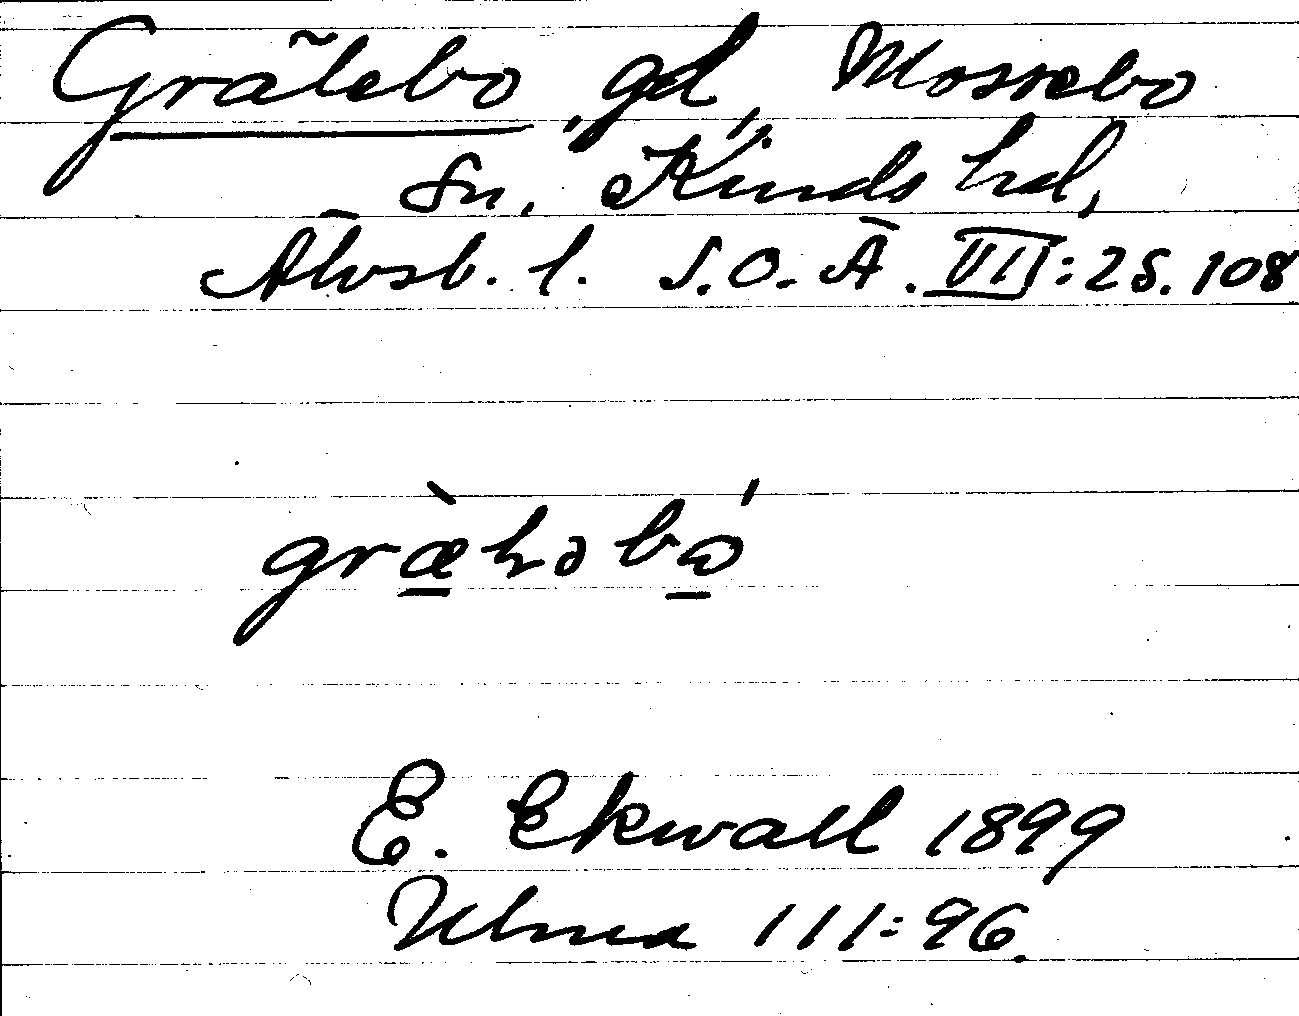 Grälebo, gd, Mossebo
sn, Kinds hd,
Älvsb. l. S.O.Ä. VII:2 S. 108
græ̀ləbó
E. Ekwall 1899
Ulma 111:96.